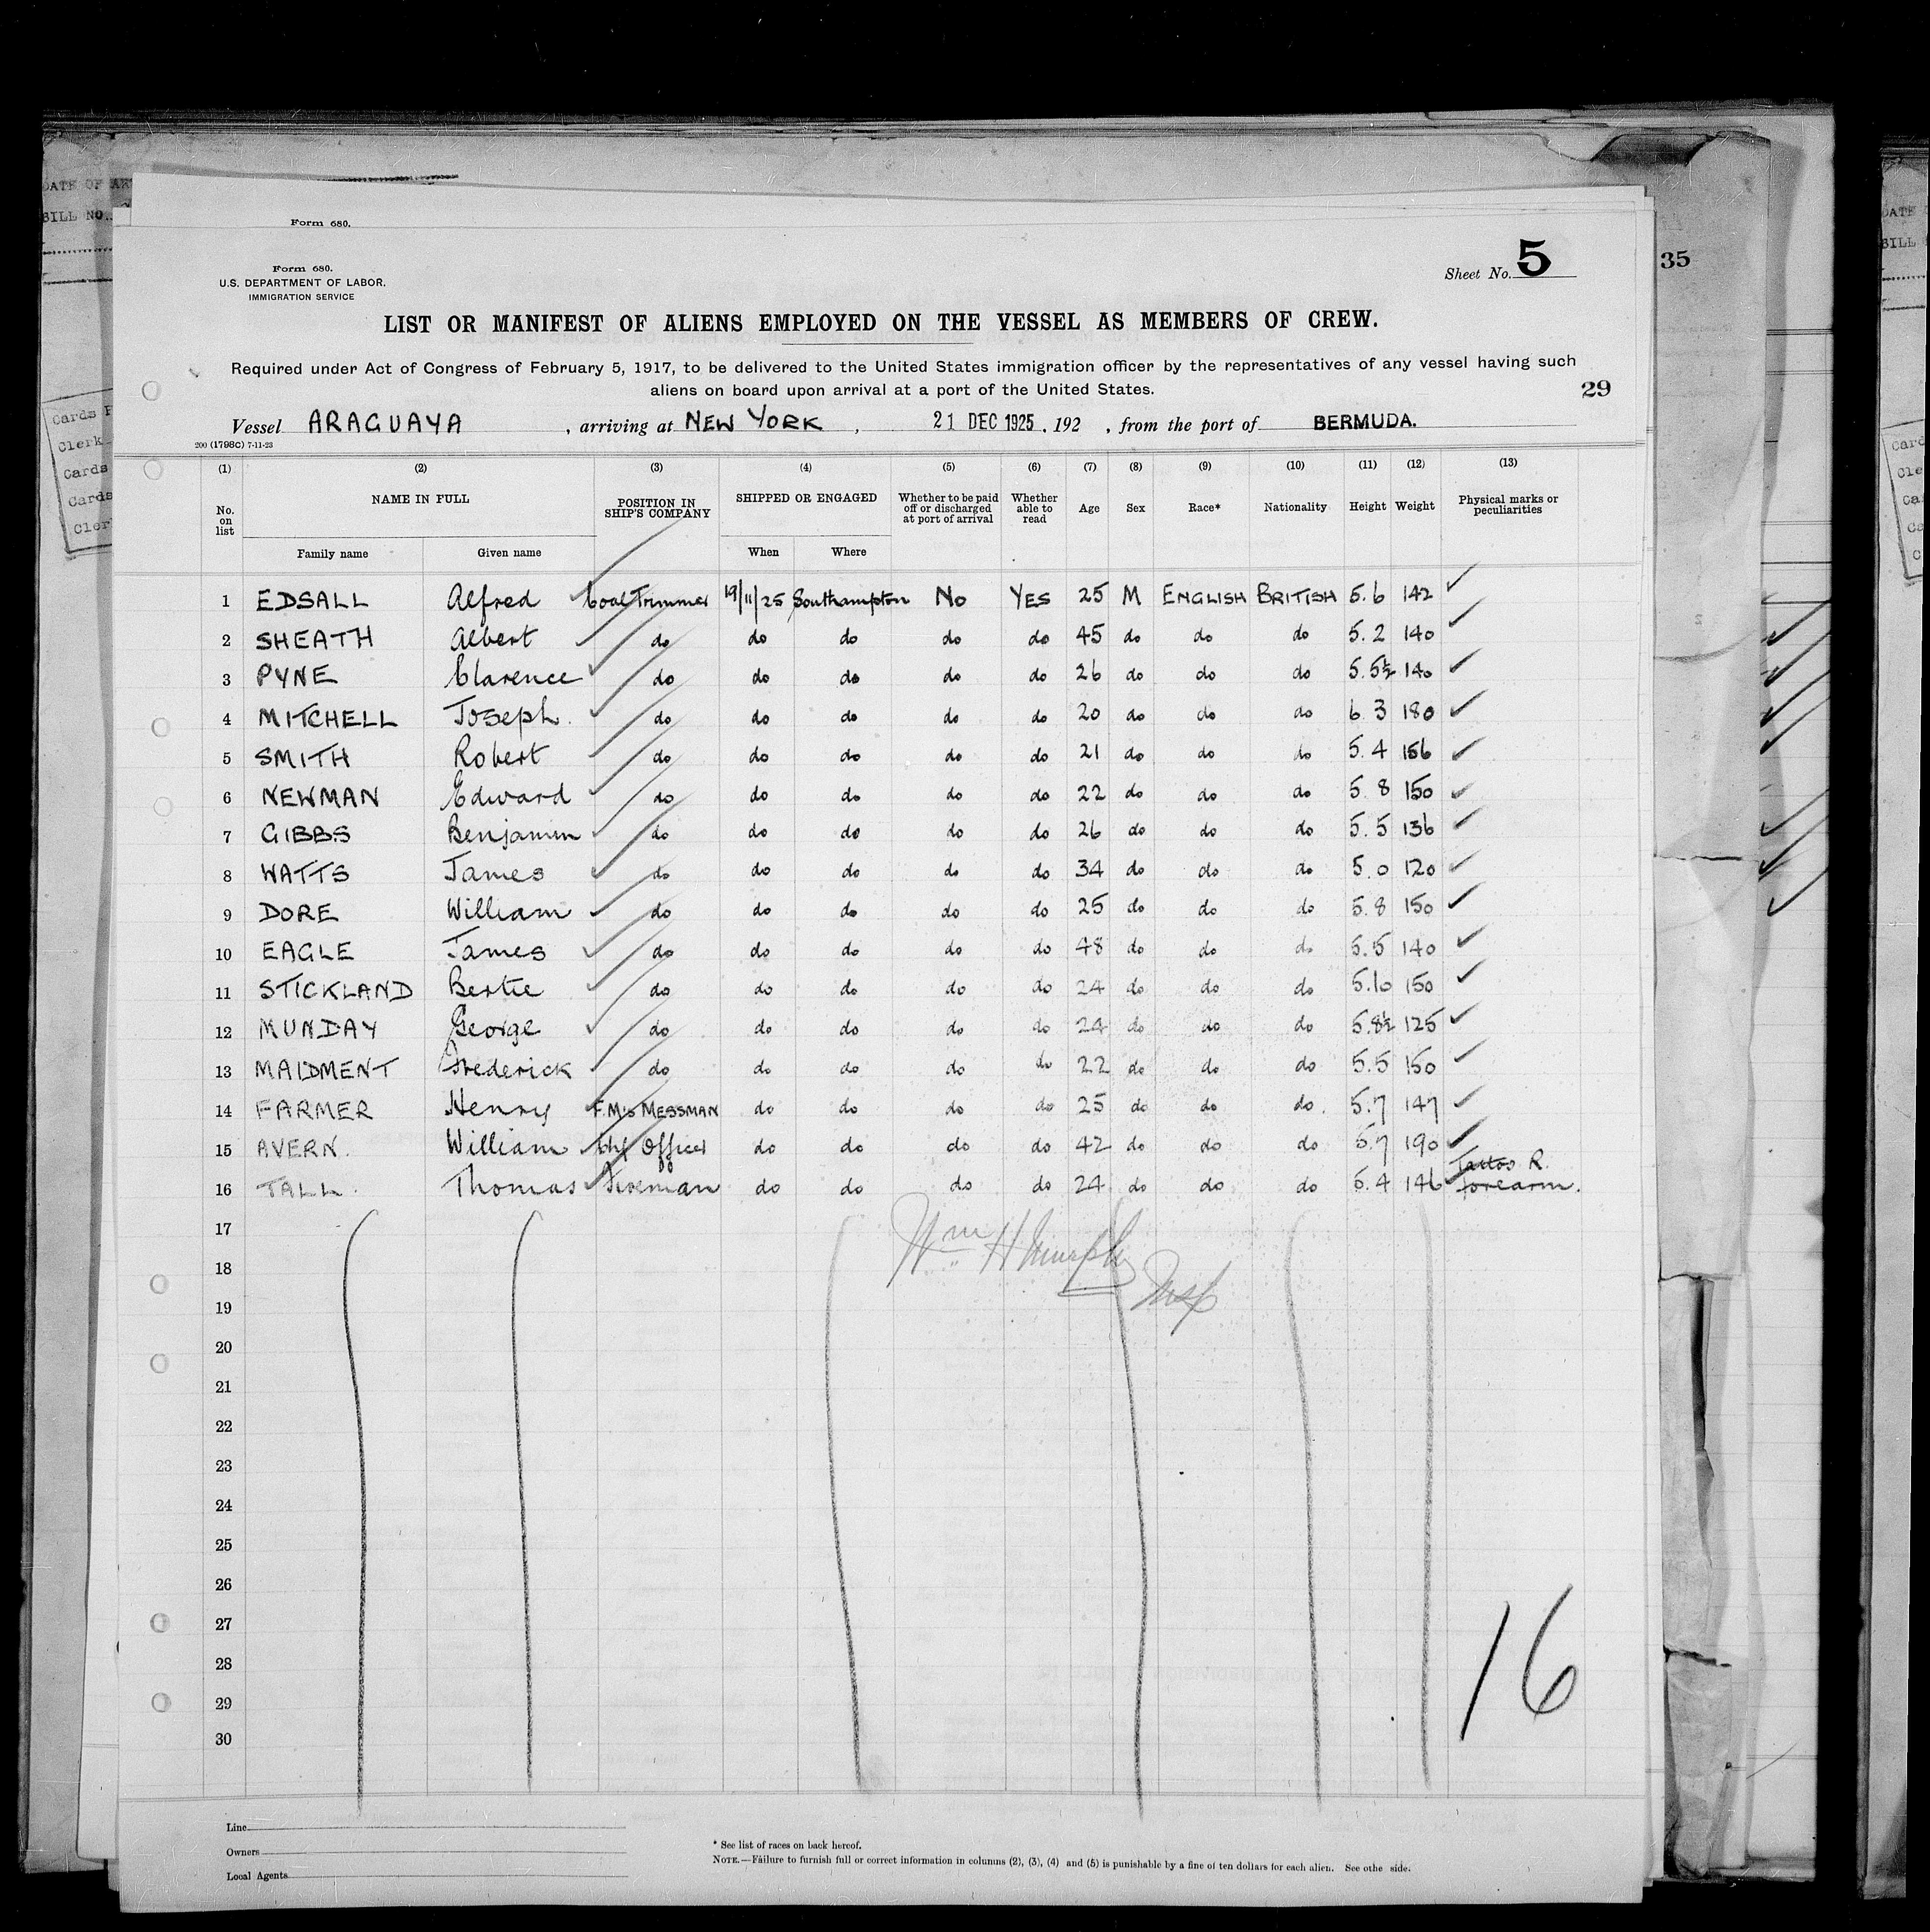 Form 680.
Form 680.
U.S. DEPARTMENT OF LABOR,
IMMIGRATION SERVICE
Sheet No. 5
35
LIST OR MANIFEST OF ALIENS EMPLOYED ON THE VESSEL AS MEMBERS OF CREW.
Required under Act of Congress of February 5, 1917, to be delivered to the United States immigration officer by the representatives of any vessel having such
aliens on board upon arrival at a port of the United States.
29
Vessel ARAGUAYA, arriving at NEW YORK, 21 DEC 1925, 192 , from the port of BERMUDA.
200 (1798C) 7-11-23
(1) (2) (3) (4) (5) (6) (7) (8) (9) (10) (11) (12) (13)
No. on list NAME IN FULL POSITION IN SHIP'S COMPANY SHIPPED OR ENGAGED Whether to be paid off or discharged at port of arrival Whether able to read Age Sex Race* Nationality Height Weight Physical marks or peculiarities
Family name Given name When Where
1 EDSALL Alfred Coal Trimmer 19/11/25 Southampton No YES 25 M ENGLISH BRITISH 5.6 142
2 SHEATH Albert do do do do do 45 do do do 5.2 140
3 PYNE Clarence do do do do do 26 do do do 5.5½ 140
4 MITCHELL Joseph. do do do do do 20 do do do 6 3 180
5 SMITH Robert do do do do do 21 do do do 5.4 156
6 NEWMAN Edward do do do do do 22 do do do 5 8 150
7 GIBBS Benjamin do do do do do 26 do do do 5.5 136
8 WATTS James do do do do do 34 do do do 5.0 120
9 DORE William do do do do do 25 do do do 5.8 150
10 EAGLE James do do do do do 48 do do do 5.5 140
11 STICKLAND Bertie do do do do do 24 do do do 5.10 150
12 MUNDAY George do do do do do 24 do do do 5.8½ 125
13 MAIDMENT Frederick do do do do do 22 do do do 5.5 150
14 FARMER Henry F.M's MESSMAN do do do do 25 do do do. 5.7 147
15 AVERN. William Chf Officer do do do do 42 do do do 5.7 190
16 TALL. Thomas Fireman do do do do 24 do do do 5.4 146 Tattoo R. forearm.
17
Wm H Murphy
18
Insp
19
20
21
22
23
24
25
26
27
28
29
30
16
Line
Owners
Local Agents
* See list of races on back hereof.
NOTE.—Failure to furnish full or correct information in columns (2), (3), (4) and (5) is punishable by a fine of ten dollars for each alien. See othe side.